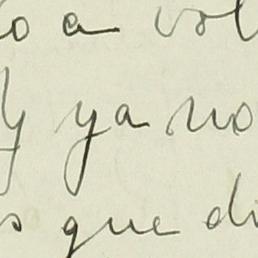 o a vol
y ya no
s que di